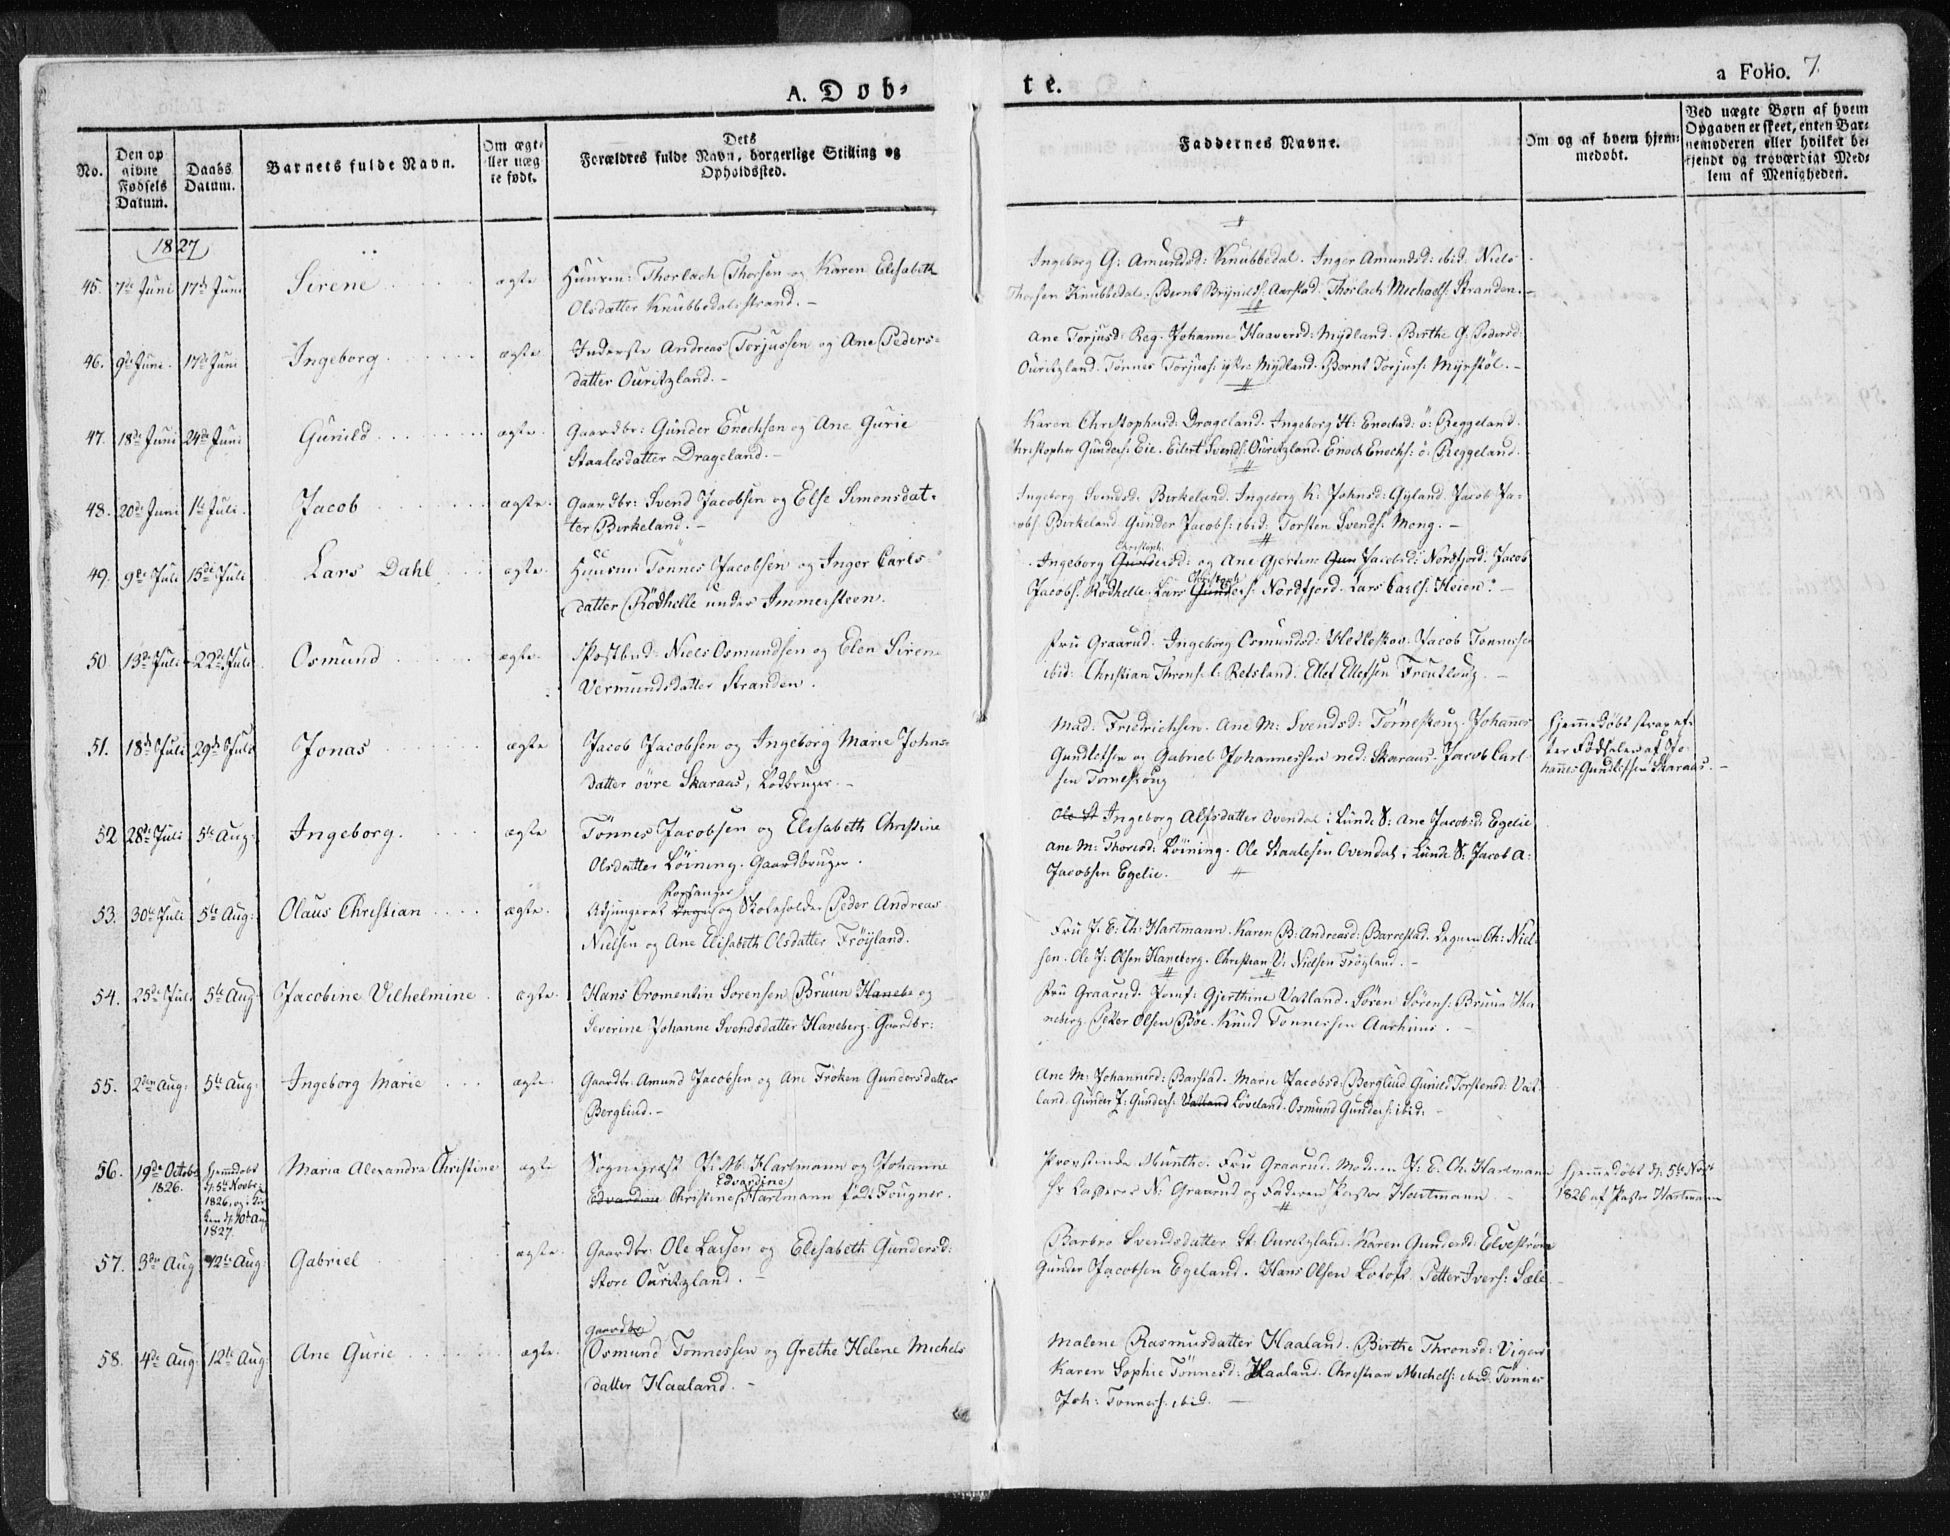 A. Døb-
te.
a Folio. 7.
No.
Den op
givne
Fødsels
Datum.
Daabs
Datum.
Barnets fulde Navn.
Om ægte
eller uæg
te født.
Dets
Forældres fulde Navn, borgerlige Stilling og
Opholdssted.
Faddernes Navne.
Om og af hvem hjem-
medøbt.
Ved uægte Børn af hvem
Opgaven er skeet, enten Bar-
nemoderen eller hvilket be-
kjendt og troværdigt Med-
lem af Menigheden.
1827
45. 7de Juni 17de Juni Sirene ægte Huusm: Thorlach Thorsen og Karen Elisabeth
Olsdatter Knubbedalsstrand. -
Ingeborg G: Amundsd: Knubbedal. Inger Amundsd: ibid. Niels
Thorsen Knubbedal. Bernt Brynilds: Aarstad. Thorlach Michaels: Stranden. -
46. 9de Juni. 17de Juni Ingeborg ægte Inderste Andreas Torjussen og Ane Peders-
datter Ouritzland. -
Ane Torjusd: Reg. Johanne Haaversd: Mydland. Birthe G. Pedersd:
Ouritzland. Tønnes Torjus: ytre Mydland. Bernt Torjus: Myrstøl. -
47. 18de Juni 24de Juni Gunild ægte. Gaardbr: Gunder Enochsen og Ane Gurie
Staalesdatter Drageland. -
Karen Christophersd: Drageland. Ingeborg H: Enochsd: ö: Reggeland.
Christopher Gunders: Eie. Eilert Svends: Ouritzland. Enoch Enochs: ö. Reggeland.
48. 20de Juni 1te Juli. Jacob ægte. Gaardbr: Svend Jacobsen og Else Simonsdat-
ter Birkeland. -
Ingeborg Svendsd. Birkeland. Ingeborg K: Johnsd: Gyland. Jacob Ja-
cobs. Birkeland. Gunder Jacobs: ibid: Torsten Svends: Mong. -
49. 9de Juli 15de Juli Lars Dahl ægte. Huusm: Tönnes Jacobsen og Inger Carls-
datter Rödhelle under Immersteen.
Christoph:
Ingeborg Gundersd: og Ane Gjertine Gun Jacobsd: Nordfjord. Jacob
Christoph
Jacobs: Rödhelle. Lars Gunders: Nordfjord. Lars Carls: Heien. -
50. 13de Juli 22de Juli Osmund ægte. Postbud: Niels Osmundsen og Elen Sirene
Vermundsdatter Stranden.
Fru Graarud. Ingeborg Osmundsd: Helleskov. Jacob Tønnessen
ibid: Christian Throns: l: Refsland. Ellef Ellefsen
51. 18de Juli 29de Juli Jonas ægte Jacob Jacobsen og Ingeborg Marie Johns-
datter övre Skaraas, Lödbruger. -
Mad: Friedrichsen. Ane M: Svendsd: Törneskoug. Johannes
Gundlefsen og Gabriel Johannessen ned: Skaraas. Jacob Carl-
sen Torneskoug
Hjemmedöbt strax ef-
ter Födselen af Jo-
hannes Gundlefsen Skaraas. -
52 28de Juli 5te Aug: Ingeborg. ægte Tönnes Jacobsen og Elisabeth Christine
Olsdatter Löining. Gaardbruger.
Ole St Ingeborg Alfsdatter Ovendal i Lunde S: Ane Jacobsd: Egelie
Ane M: Thorsd: Löining. Ole Staalesen Ovendal i Lunde S: Jacob A:
Jacobsen Egelie.
53. 30te Juli 5te Aug: Olaus Christian ægte. Forsanger
Adjungeret og Skoleholder Peder Andreas
Nielsen og Ane Elisabeth Olsdatter Fröyland.
Fru J. E: Ch: Hartmann. Karen B: Andreasd: Barrestad. Degnen Ch: Niel-
sen. Ole J: Olsen Haneberg. Christian V: Nielsen Frögland. -
54. 25de Juli 5te Aug: Jacobine Vilhelmine ægte Hans Cromentin Sörensen Bruun Haneb og
Severine Johanne Svendsdatter Haneberg. Gaardbr:
Fru Graarud. Jomf: Gjerthine Vatland. Sören Sörens: Bruun Ha-
neberg. Peter Olsen Böe. Knud Tonnessen Aarhuus.
55. 2den Aug: 5te Aug: Ingeborg Marie ægte. Gaardbr: Amund Jacobsen og Ane Fröken Gundersdatter
Berglind. -
Ane M: Johannesd: Barstad. Marie Jacobsd: Berglind. Gunild Torstensd: Vat-
land. Gunder T: Gunders: Vatland Löveland. Osmund Gunders: ibid: -
56. 19de Octobr
1826. Hjemmedöbt
d: 5te Novbr:
1826, og i Kir-
ken d: 10de Aug
1827. Maria Alexandra Christine ægte Sognepræst J: Ab: Hartmann og Johanne
Edvardine
Edvardine Christine Hartmann födt Tougner.
Provstinde Munthe. Fru Graarud. Moderen J: E. Ch: Hartmann
Hr N: Graarud og Faderen Pastor Hartmann
Hjemmedöbt d: 5te Novbr
1826 af Pastor Hartmann
57. 3die Aug 12te Aug: Gabriel ægte. Gaardbr: Ole Larsen og Elisabeth Gundersd:
Store Ouritzland. -
Barbro Svendsdatter St: Ouritzland. Karen Gundersd: Elveström
Gunder Jacobsen Egeland. Hans Olsen Loftoft. Petter Ivers: Sæle
58. 4de Aug: 12te Aug: Ane Gurie ægte. Gaardbr
Osmund Tönnessen og Grethe Helene Michels
datter Haaland. -
Malene Rasmusdatter Haaland. Birthe Thronsd: Vigen
Karen Sophie Tönnesd: Haaland. Christian Michels: ibid. Tönnes
Joh: Tonnes: ibid. -